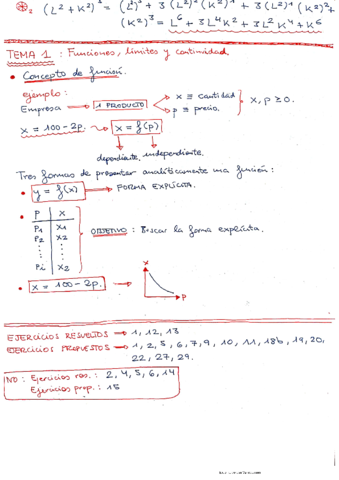 (L² + K²)³ = (L²)³ + 3 (L²)² (K²)¹ + 3 (L²)¹ (K²)² +
(K²)³ = L⁶ + 3 L⁴ K² + 3 L² K⁴ + K⁶
TEMA 1 : Funciones, límites y continuidad.
• Concepto de función.
ejemplo:
Empresa → 1 PRODUCTO
x ≡ cantidad
p ≡ precio.
x, p ≥ 0.
x = 100 - 2p. → x = f(p)
dependiente, independiente.
Tres formas de presentar analíticamente una función:
• y = f(x) → FORMA EXPLÍCITA.
• P X
P1 X1
P2 X2
Pi X2
OBJETIVO : Buscar la forma explícita.
• x = 100 - 2p. →
x
p
EJERCICIOS RESUELTOS → 1, 12, 13
EJERCICIOS PROPUESTOS → 1, 2, 5, 6, 7, 9, 10, 11, 18b, 19, 20,
22, 27, 29.
NO : Ejercicios res. : 2, 4, 5, 6, 14
Ejercicios prop. : 15